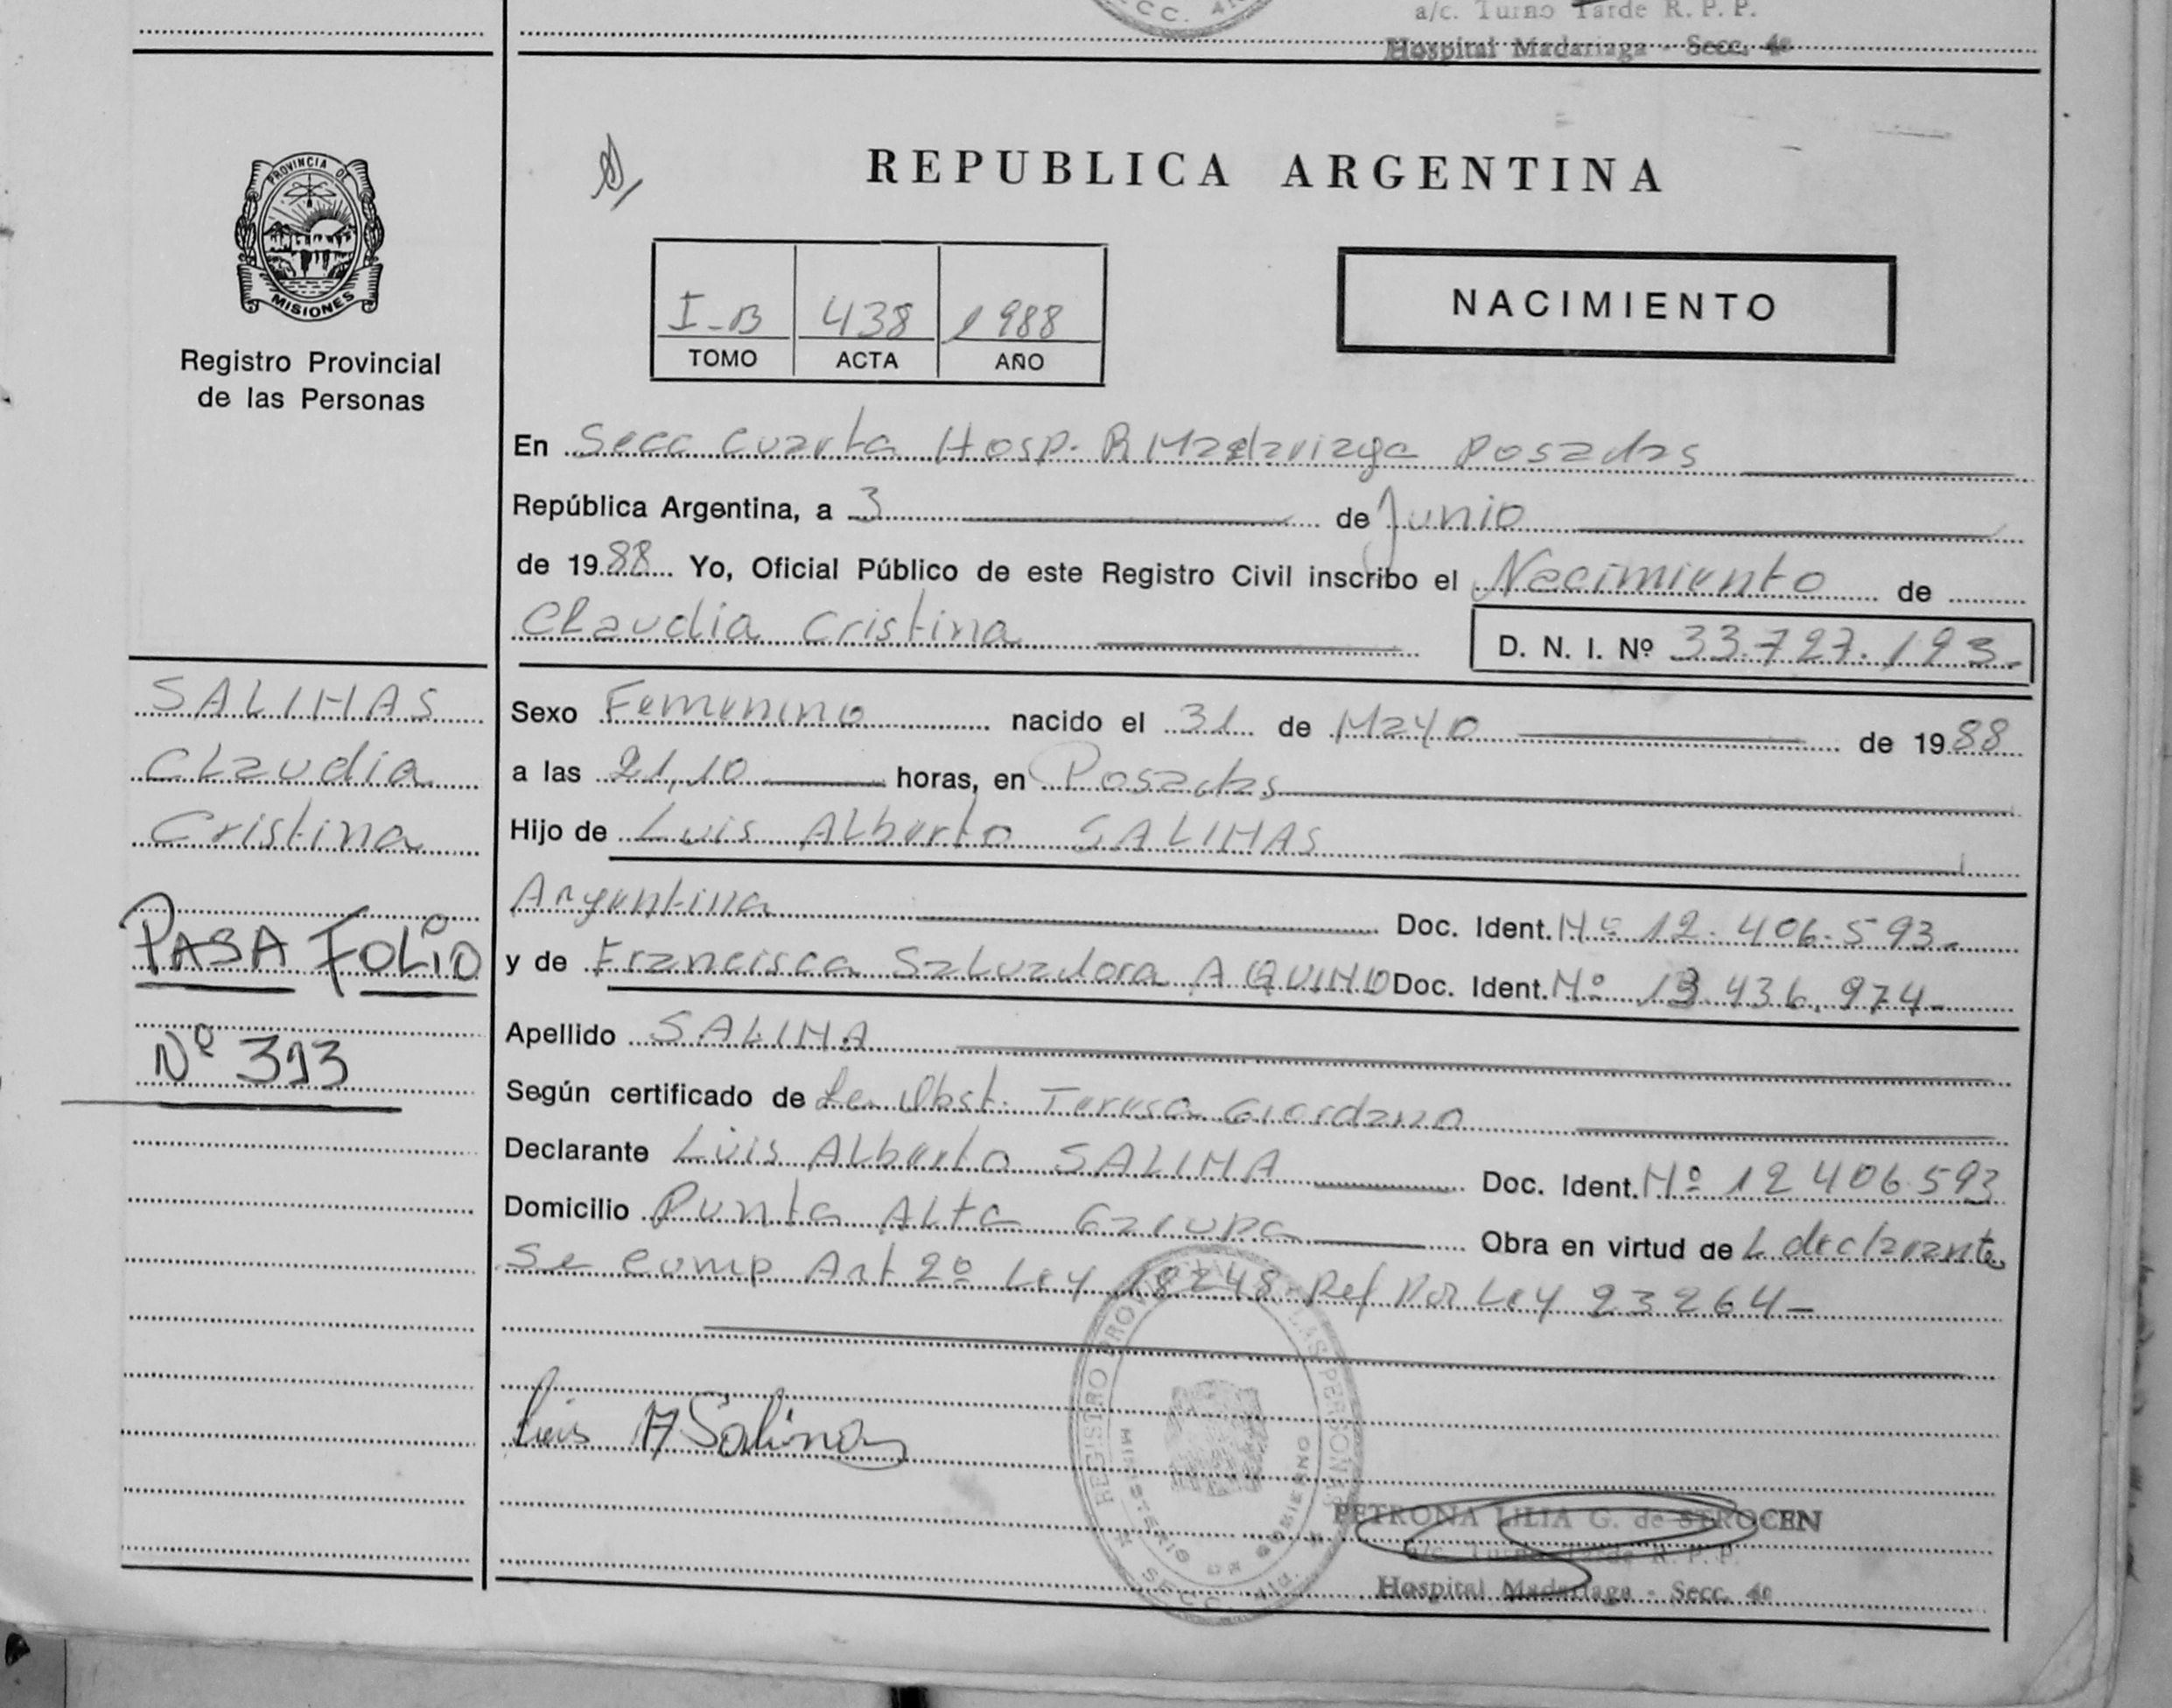 a/c. Turno Tarde R. P. P.
Hospital Madariaga - Secc. 4a
PROVINCIA DE
MISIONES
Registro Provincial
de las Personas
REPUBLICA ARGENTINA
I-B 438 1988
TOMO ACTA AÑO
NACIMIENTO
En Secc Cuarta Hosp. R Madariaga Posadas
República Argentina, a 3 de Junio
de 1988 Yo, Oficial Público de este Registro Civil inscribo el Nacimiento de
Claudia Cristina D. N. I. Nº 33.727.193.
SALINAS
Claudia
Cristina
PASA FOLIO
Nº 393
Sexo Femenino nacido el 31 de Mayo de 1988
a las 21,10 horas, en Posadas
Hijo de Luis Alberto SALINAS
Argentina Doc. Ident. Nº 12.406.593-
y de Francisca Salvadora AQUINO Doc. Ident. Nº 13.436.974-
Apellido SALINA
Según certificado de La Obst. Teresa Giordano
Declarante Luis Alberto SALINA Doc. Ident. Nº 12 406.593
Domicilio Punta Alta Garupa Obra en virtud de L declarante
Se comp Art 2º Ley 18248 Ref Por Ley 23264-
Luis A Salinas
REGISTRO PROVINCIAL DE LAS PERSONAS
MINISTERIO DE GOBIERNO
SECC. 4ta.
PETRONA LILIA G. de STROCEN
a/c. Turno Tarde R. P. P.
Hospital Madariaga - Secc. 4a